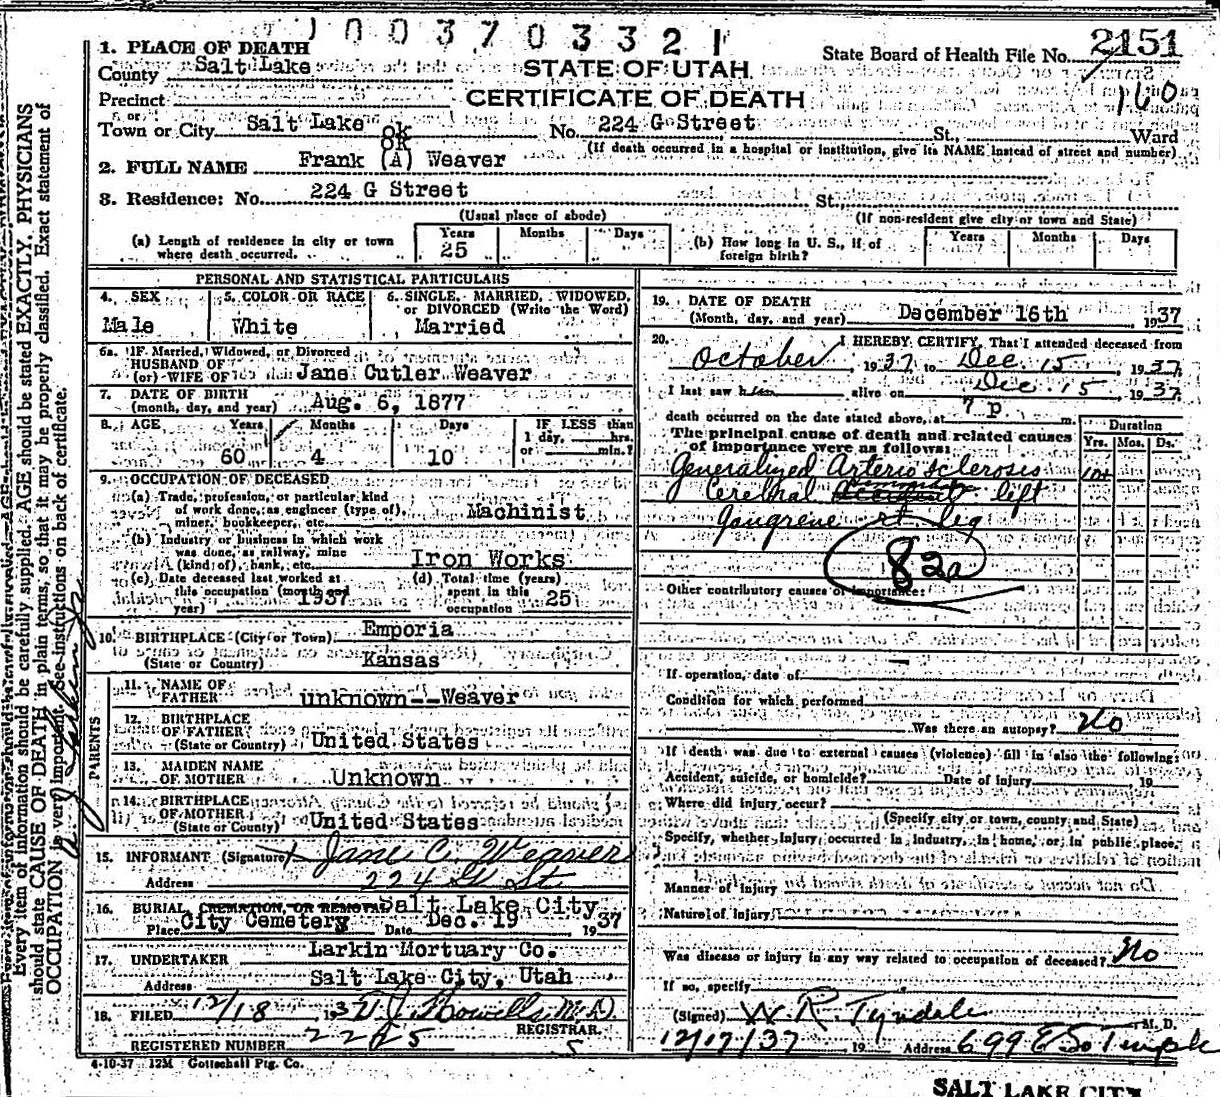 1003703321
State Board of Health File No. 2151
160
1. PLACE OF DEATH
County Salt Lake
STATE OF UTAH
CERTIFICATE OF DEATH
Precinct
or
Town or City Salt Lake No. 224 G Street St. Ward
ok
ok
(If death occurred in a hospital or institution, give its NAME instead of street and number)
2. FULL NAME Frank (A) Weaver
3. Residence: No. 224 G Street St.
(Usual place of abode) (If non-resident give city or town and State)
(a) Length of residence in city or town where death occurred. Years 25 Months Days
(b) How long in U. S., if of foreign birth? Years Months Days
PERSONAL AND STATISTICAL PARTICULARS
4. SEX Male
5. COLOR OR RACE White
6. SINGLE, MARRIED, WIDOWED, or DIVORCED (Write the Word) Married
6a. IF Married, Widowed, or Divorced
HUSBAND OF
(or) WIFE OF Jane Cutler Weaver
7. DATE OF BIRTH
(month, day, and year) Aug. 6, 1877
8. AGE Years 60 Months 4 Days 10
IF LESS than 1 day, hrs. or min.?
9. OCCUPATION OF DECEASED
(a) Trade, profession, or particular kind
of work done, as engineer (type of),
miner, bookkeeper, etc. Machinist
(b) Industry or business in which work
was done, as railway, mine
(kind of), bank, etc. Iron Works
(c) Date deceased last worked at
this occupation (month and
year) 1937
(d) Total time (years)
spent in this
occupation 25
10. BIRTHPLACE (City or Town) Emporia
(State or Country) Kansas
PARENTS
11. NAME OF
FATHER unknown--Weaver
12. BIRTHPLACE
OF FATHER
(State or Country) United States
13. MAIDEN NAME
OF MOTHER Unknown
14. BIRTHPLACE
OF MOTHER
(State or Country) United States
15. INFORMANT (Signature) Jane C. Weaver
Address 224 G St.
16. BURIAL, CREMATION, OR REMOVAL Salt Lake City
Place City Cemetery Date Dec. 19 1937
17. UNDERTAKER Larkin Mortuary Co.
Address Salt Lake City, Utah
18. FILED 12/18 193 M.D.
REGISTRAR.
REGISTERED NUMBER 2225
4-10-37 12M Gottschall Ptg. Co.
19. DATE OF DEATH
(Month, day, and year) December 16th, 1937
20. I HEREBY CERTIFY, That I attended deceased from
October, 1937 to Dec. 15, 1937
I last saw him alive on Dec 15, 1937
death occurred on the date stated above, at 7 p m.
The principal cause of death and related causes
of importance were as follows:
Duration
Yrs. Mos. Ds.
Generalized Arterio sclerosis 10+
Cerebral left
Gangrene rt. leg
82a
Other contributory causes of importance:
If operation, date of
Condition for which performed
Was there an autopsy? No
If death was due to external causes (violence) fill in also the following:
Accident, suicide, or homicide? Date of injury 19
Where did injury occur?
(Specify city or town, county and State)
Specify, whether injury occurred in industry, in home, or in public place.
Manner of injury
Nature of injury
Was disease or injury in any way related to occupation of deceased? No
If so, specify
(Signed) W. R. Tyndale M. D.
12/17/37 19 Address 699 E So Temple
SALT LAKE CITY
Every item of information should be carefully supplied. AGE should be stated EXACTLY. PHYSICIANS
should state CAUSE OF DEATH in plain terms, so that it may be properly classified. Exact statement of
OCCUPATION is very important. See instructions on back of certificate.